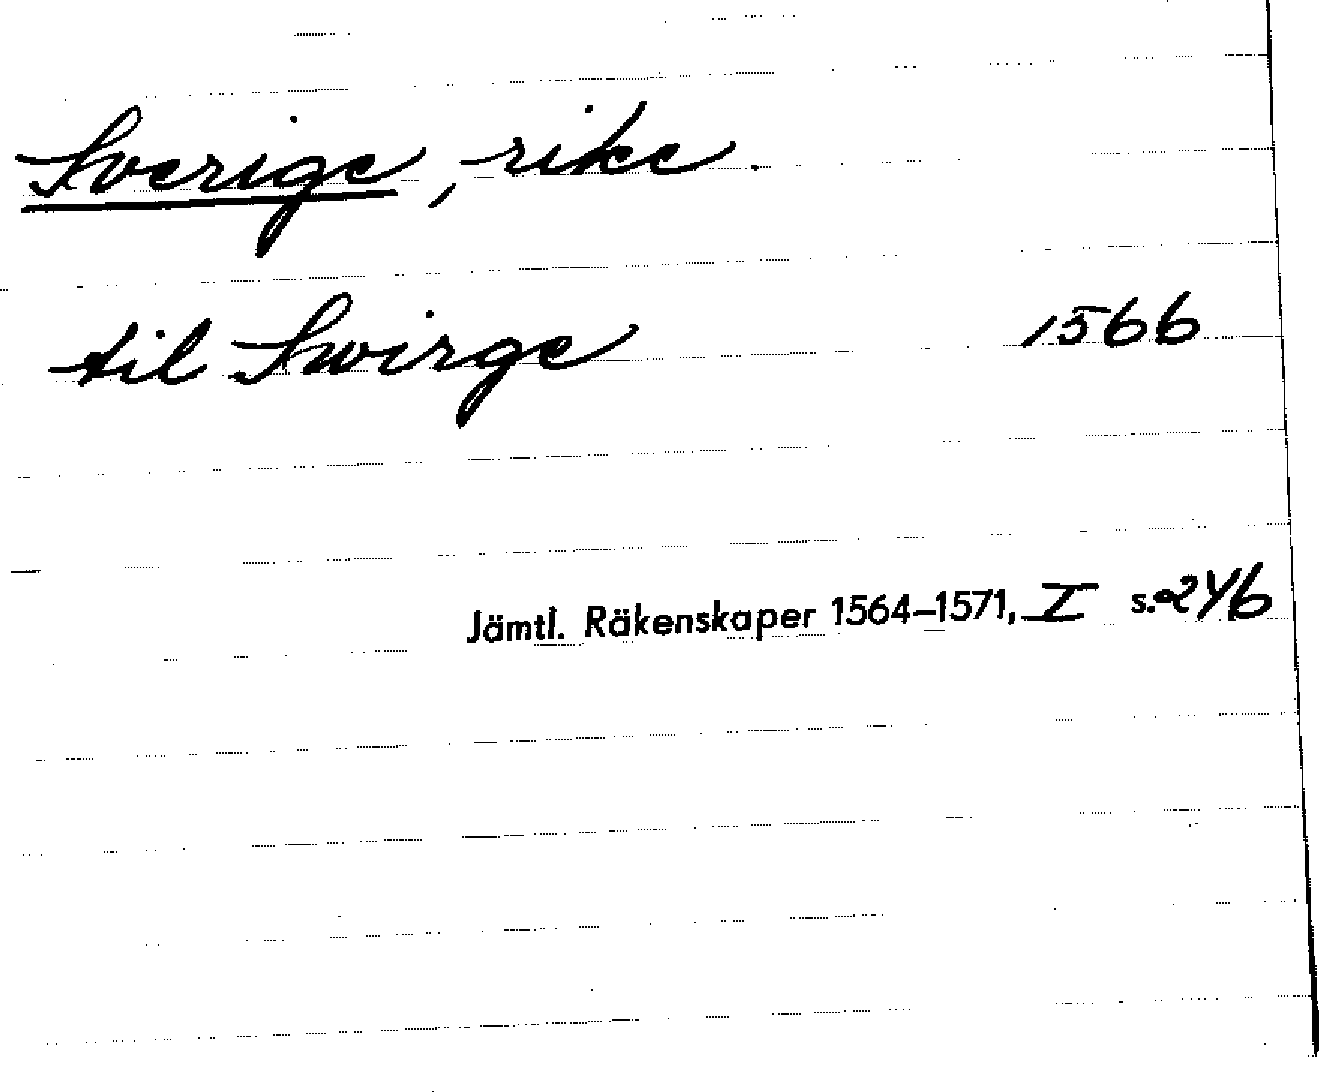 Sverige, rike.
til Swirge 1566
Jämtl. Räkenskaper 1564–1571, I s. 246